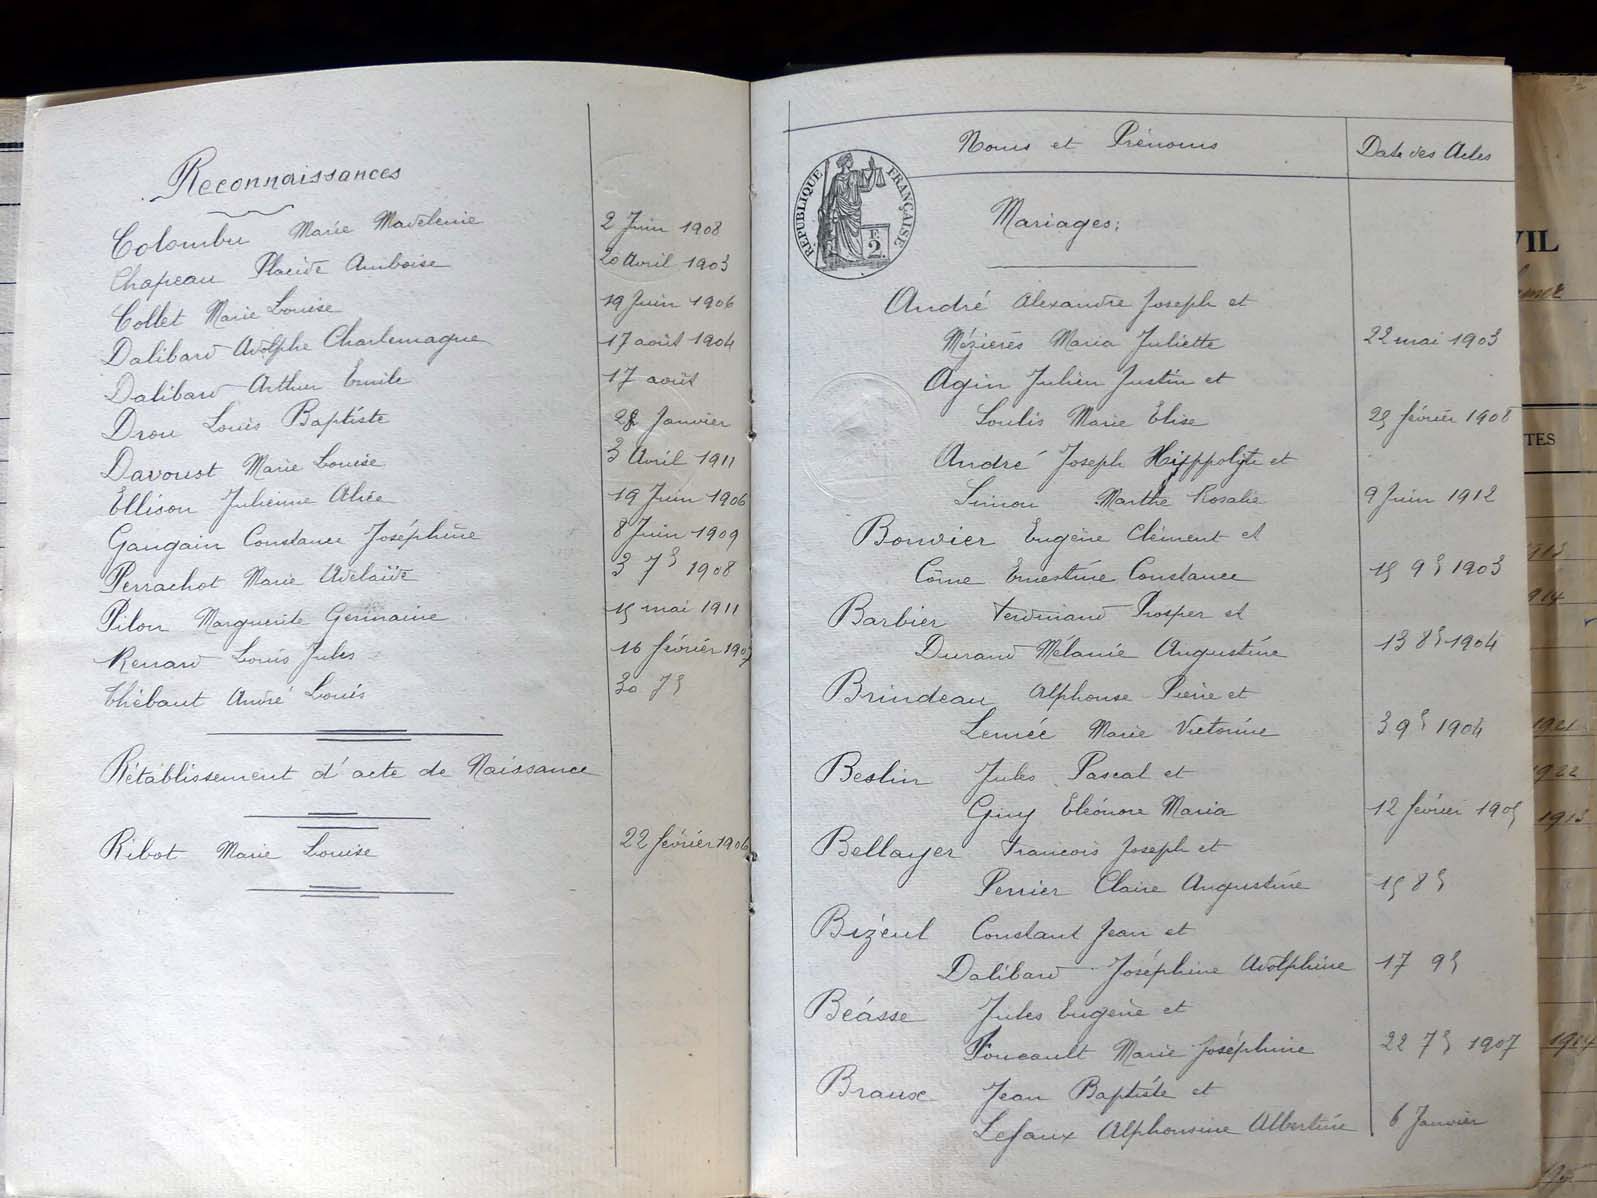 Reconnaissances
Colombu Marie Madeleine 2 Juin 1908
Chapeau Placide Amboise 20 Avril 1903
Collet Marie Louise 19 Juin 1906
Dalibard Adolphe Charlemagne 17 août 1904
Dalibard Arthur Emile 17 août
Drou Louis Baptiste 28 Janvier
Davoust Marie Louise 3 Avril 1911
Ellison Julienne Alice 19 Juin 1906
Gaugain Constance Joséphine 8 Juin 1909
Perrachot Marie Adelaïde 3 7ᵇ 1908
Pilon Marguerite Germaine 15 mai 1911
Renard Louis Jules 16 février 1907
Thébaut André Louis 30 7ᵇ
Rétablissement d'acte de Naissance
Ribot Marie Louise 22 février 1906
Noms et Prénoms Date des Actes
RÉPUBLIQUE FRANÇAISE
F.
2.
Mariages:
André Alexandre Joseph et
Mézières Maria Juliette 22 mai 1903
Agin Julien Justin et
Soulis Marie Elise 25 février 1908
André Joseph Hipppolyte et
Simon Marthe Rosalie 9 Juin 1912
Bouvier Eugène Clément et
Côme Ernestine Constance 15 9ᵇ 1903
Barbier Ferdinand Prosper et
Durand Mélanie Augustine 13 8ᵇ 1904
Brindeau Alphonse Pierre et
Lemée Marie Victorine 3 9ᵇ 1904
Beslin Jules Pascal et
Guy Eléonore Maria 12 février 1905
Bellayer Francois Joseph et
Perrier Claire Augustine 15 8ᵇ
Bizeul Constant Jean et
Dalibard Joséphine Adolphine 17 9ᵇ
Béasse Jules Eugène et
Foucault Marie Joséphine 22 7ᵇ 1907
Braux Jean Baptiste et
Lefaux Alphonsine Albertine 6 Janvier
VIL
TES
1922
1913